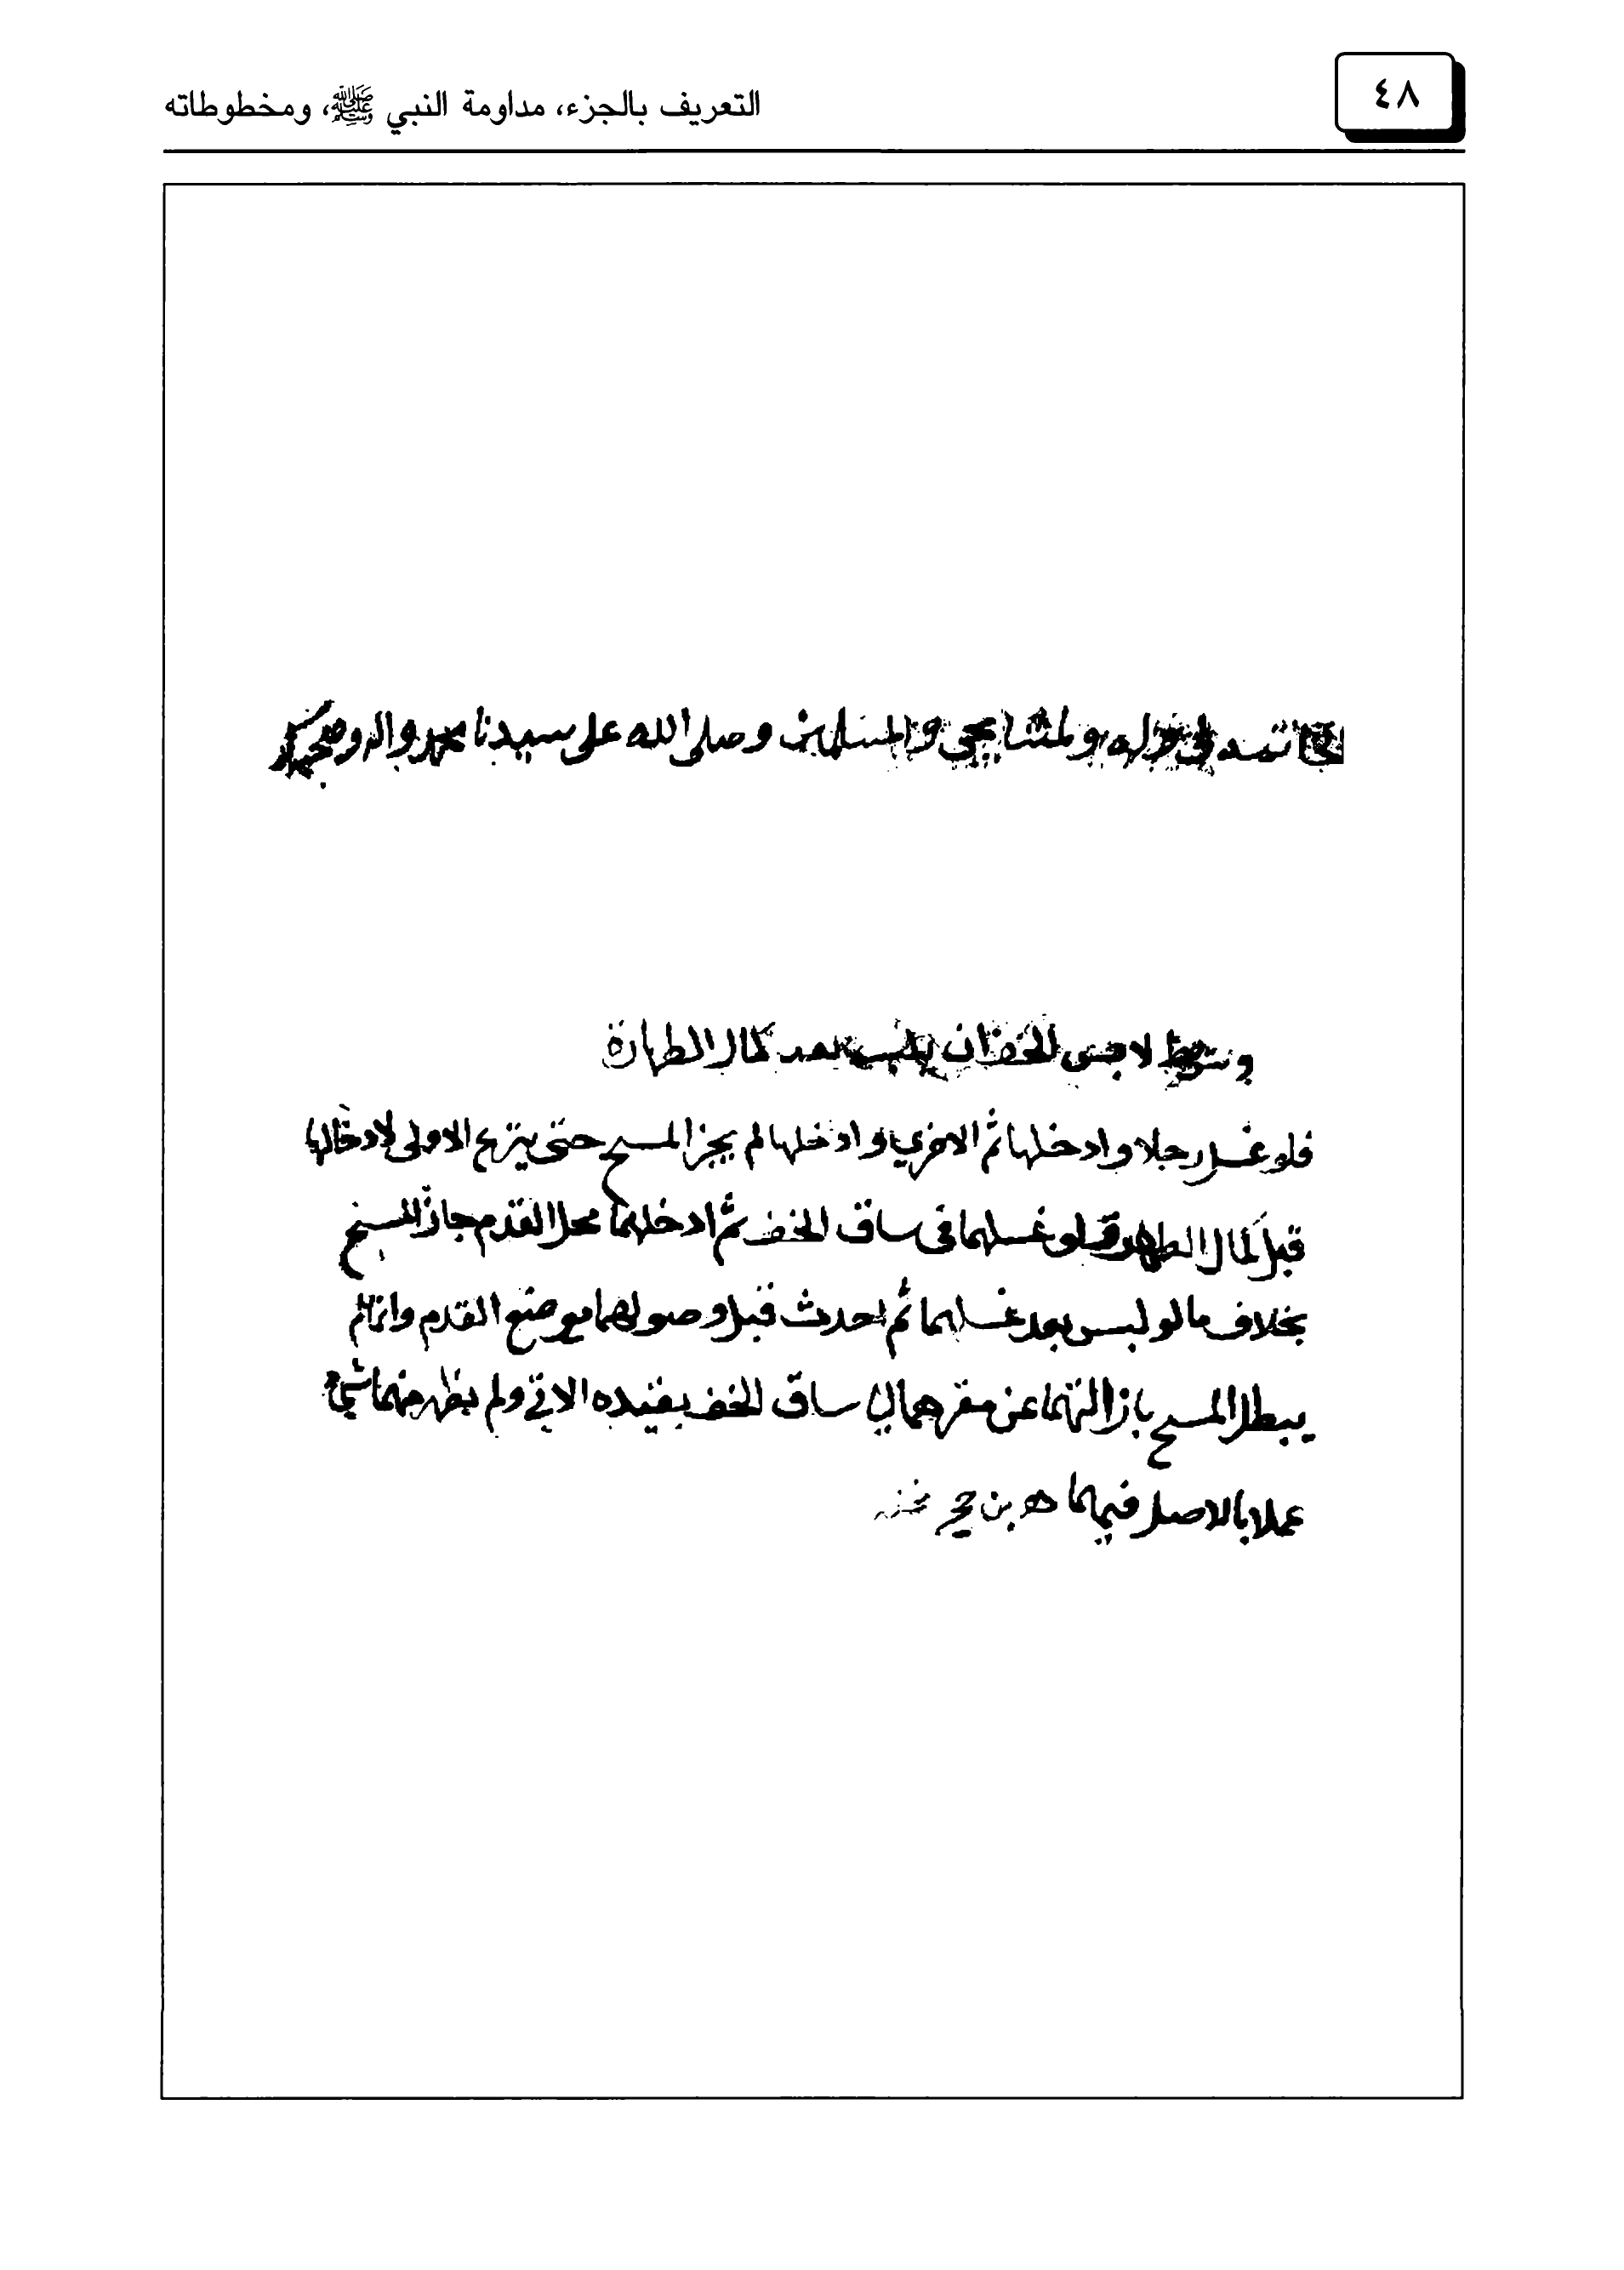 ٤٨
التعريف بالجزء، مداومة النبي ﷺ، ومخطوطاته
ولمشايخي والمسلمين وصلى الله على سيدنا محمد واله وصحبه
وشرط لابس الخف ان يلبس بعد كمال الطهارة
فلو غسل رجلا وادخلها ثم الاخرى وادخلها لم يجز المسح حتى ينزع الاولى لادخالها
قبل كمال الطهر ولو غسلهما في ساق الخف ثم ادخلهما محل القدم جاز المسح
بخلاف ما لو لبس بعد غسلهما ثم احدث قبل وصولهما موضع القدم وانما لم
يبطل المسح بازالتهما عن مقرهما الى ساق الخف بقيده الاتي ولم يظهر منهما شيء
عملا بالاصل فيهما اهـ بن حجر